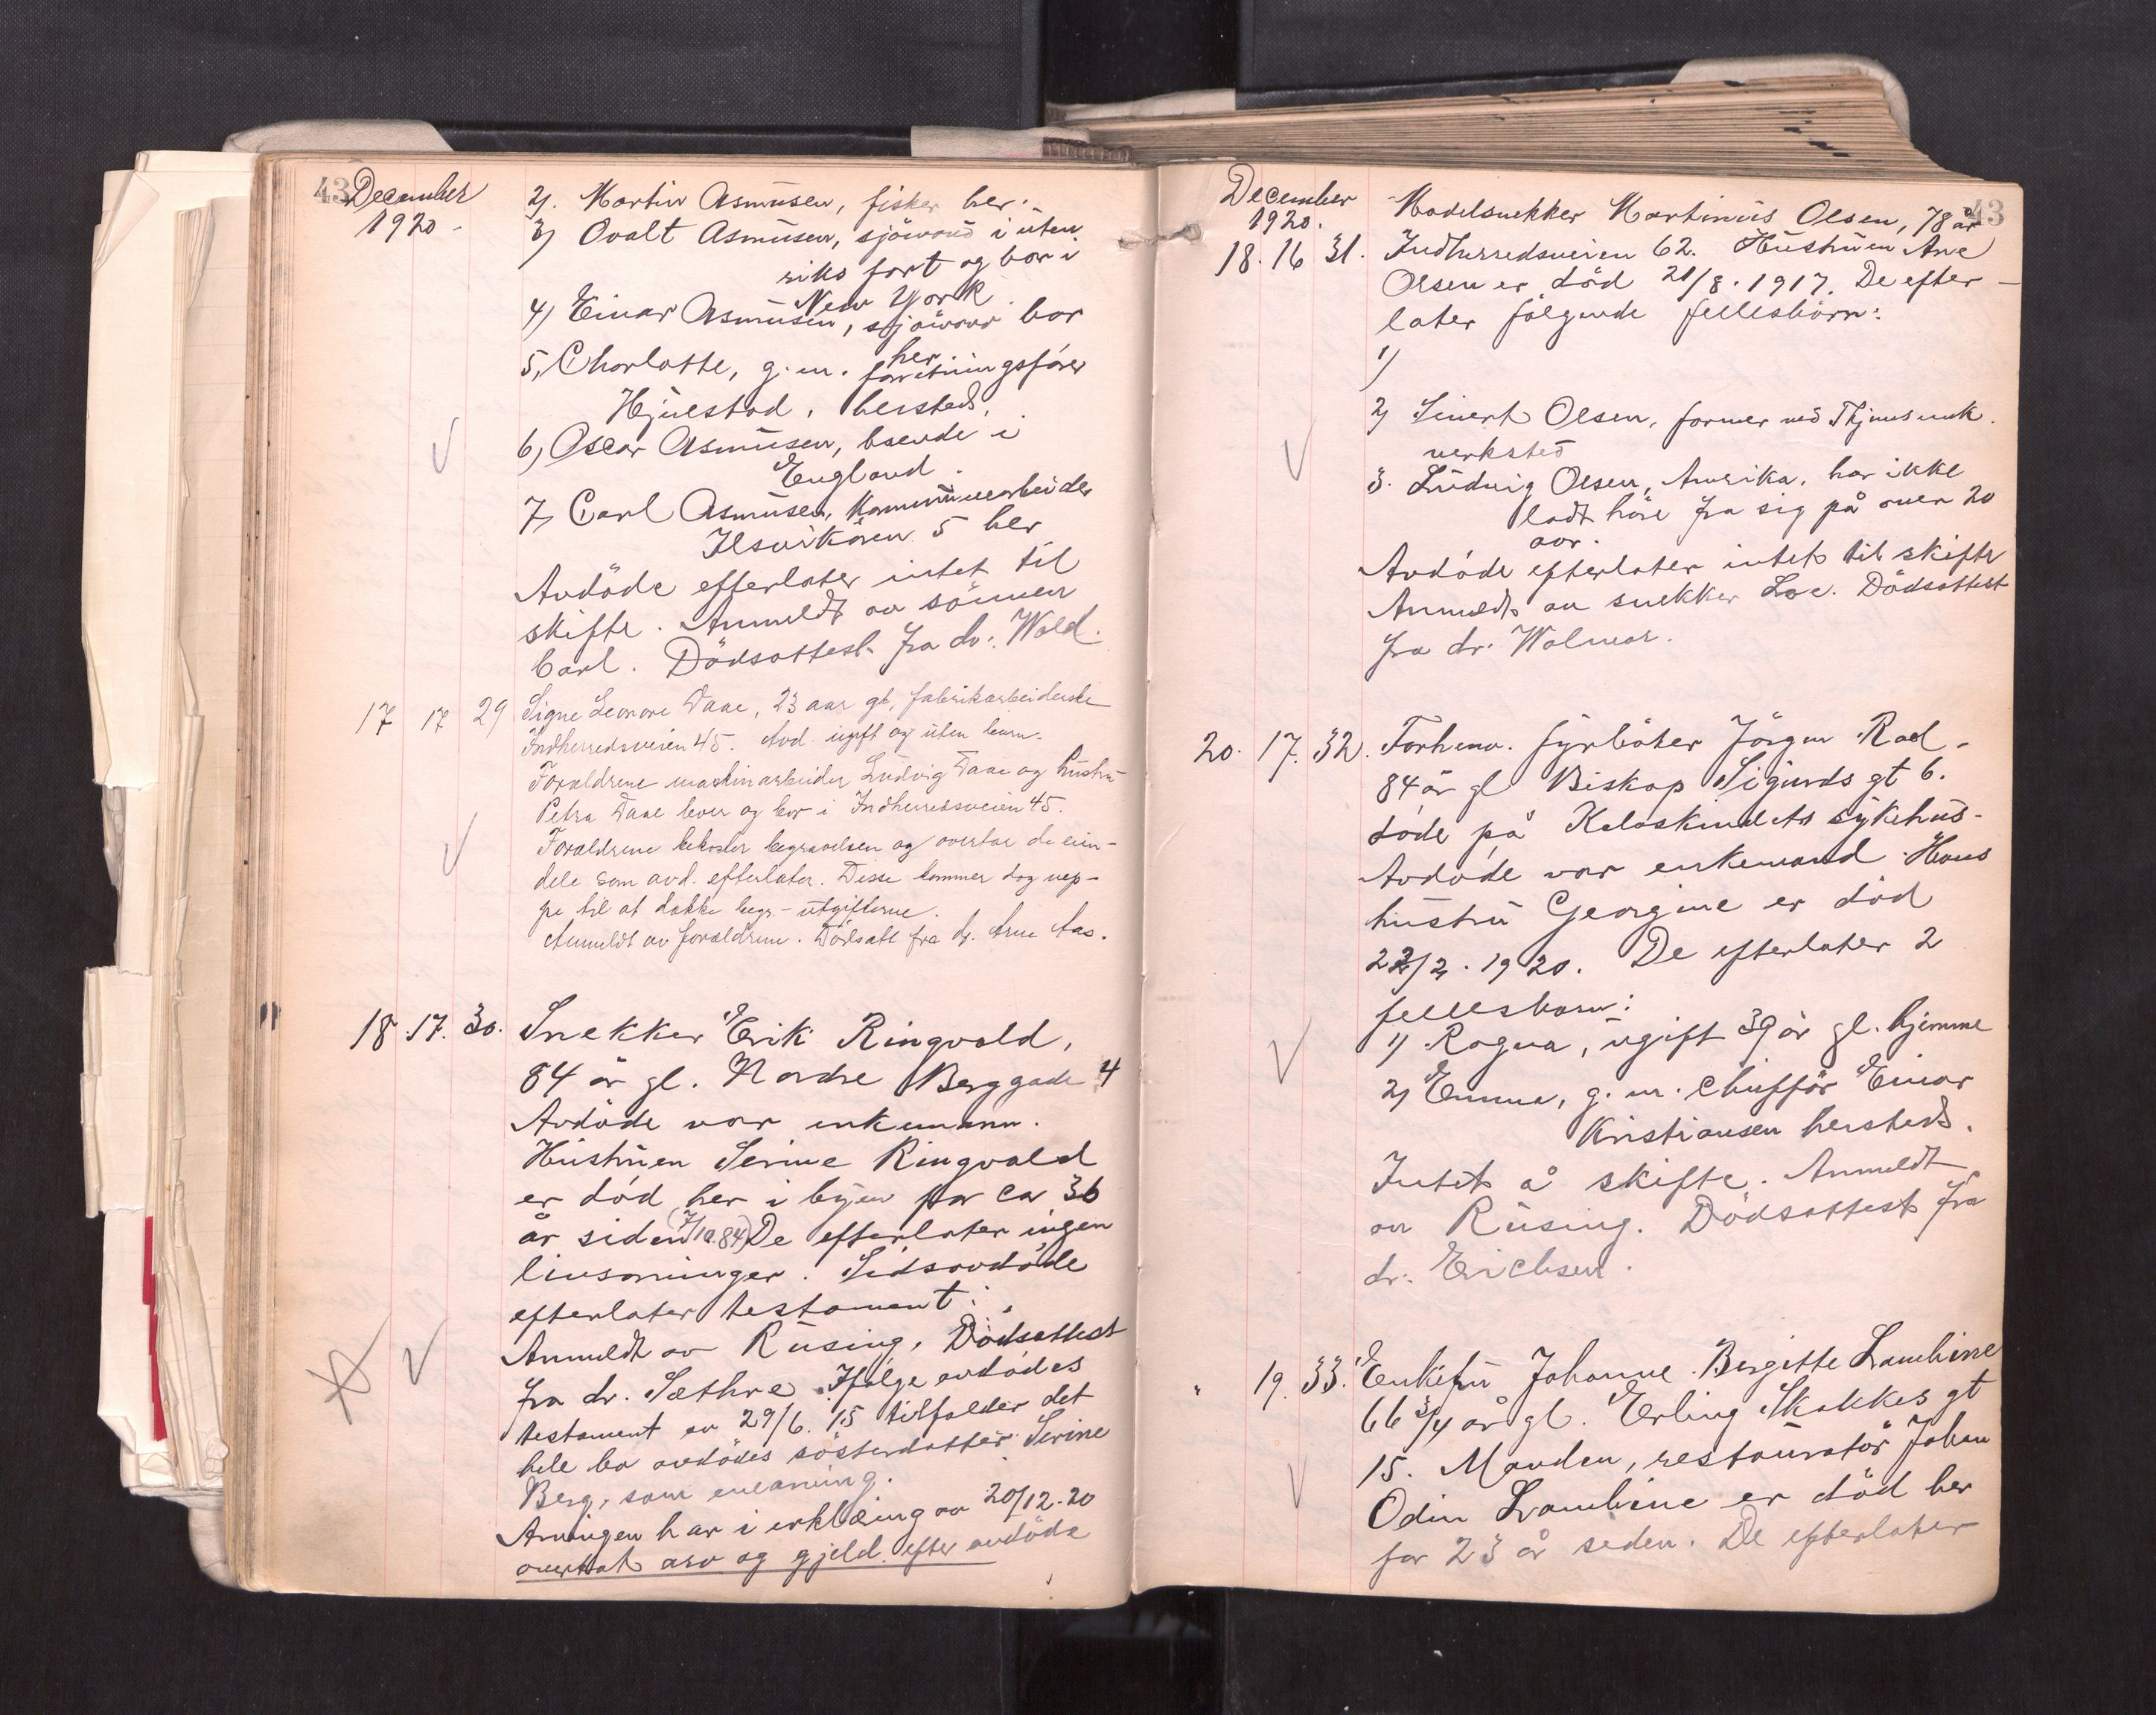 43 December
1920 -
2). Martin Asmusen, fisker her.
3) Ovalt Asmusen, sjömand i uten
riks fart og bor i
New York.
4) Einar Asmusen, sjömand bor
her.
5, Charlotte, g. m. forretningsförer
Hjulstad, hersteds,
6) Oscar Asmusen, boende i
England.
7, Carl Asmusen, Kommunearbeider
Ilsvikören 5 her
Avdöde efterlater intet til
skifte. Anmeldt av sönnen
Carl. Dödsattest fra dr. Wold.
17 17 29 Signe Leonore Daae, 23 aar gl, fabrikarbeiderske
Indherredsveien 45. Avd. ugift og uten barn.
Foraldrene maskinarbeider Ludvig Daae og hustru
Petra Daae lever og bor i Indherredsveien 45.
Foraldrene bekoster begravelsen og overtar de eien-
dele som avd. efterlater. Disse kommer dog nep-
pe til at dakke begr.-utgifterne.
Anmeldt av foraldrene. Dödsatt fra dr. Arne Aas.
18. 17. 30. Snekker Erik Ringvold,
84 år gl. Nordre Berggade 4
Avdöde var enkemann.
Hustruen Serine Ringvold
er död her i byen for ca 36
år siden (7/10.84) De efterlater ingen
livsarvinger. Sidstavdöde
efterlater testament:
Anmeldt av Rüsing, Dödsattest
fra dr. Sæthre. Ifölge avdödes
testament av 29/6. 15 tilfalder det
hele bo avdödes sösterdatter Serine
Berg, som enearving.
Arvingen har i erklæring av 20/12. 20
overtat arv og gjeld efter avdöde
December 43
1920.
18. 16 31. Modelsnekker Martinus Olsen, 78 år
Indherredsveien 62. Hustruen Ane
Olsen er död 21/8. 1917. De efter-
later fölgende fellesbörn:
1)
2) Sivert Olsen, former ved Thjems mek.
verksted
3. Ludvig Olsen, Amerika, har ikke
ladt höre fra sig på over 20
aar.
Avdöde efterlater intet til skifte
Anmeldt av snekker Loe. Dödsattest
fra dr. Wolmar.
20. 17. 32. Forhenv. fyrböter Jörgen Rad.
84 år gl Biskop Sigurds gt 6.
döde på Kaloskindets sykehus.
Avdöde var enkemand. Hans
hustru Georgine er död
22/2. 1920. De efterlater 2
fellesbarn:
1) Ragna, ugift 39 år gl. hjemme
2) Emma, g. m. chufför Einar
Kristiansen hersteds.
Intet å skifte. Anmeldt
av Rüsing. Dödsattest fra
dr. Erichsen.
" 19. 33. Enkefru Johanne Bergitte Lambine
66 3/4 år gl. Erling Skakkes gt
15. Manden, restauratör Johan
Odin Lambine er död her
for 23 år siden. De efterlater